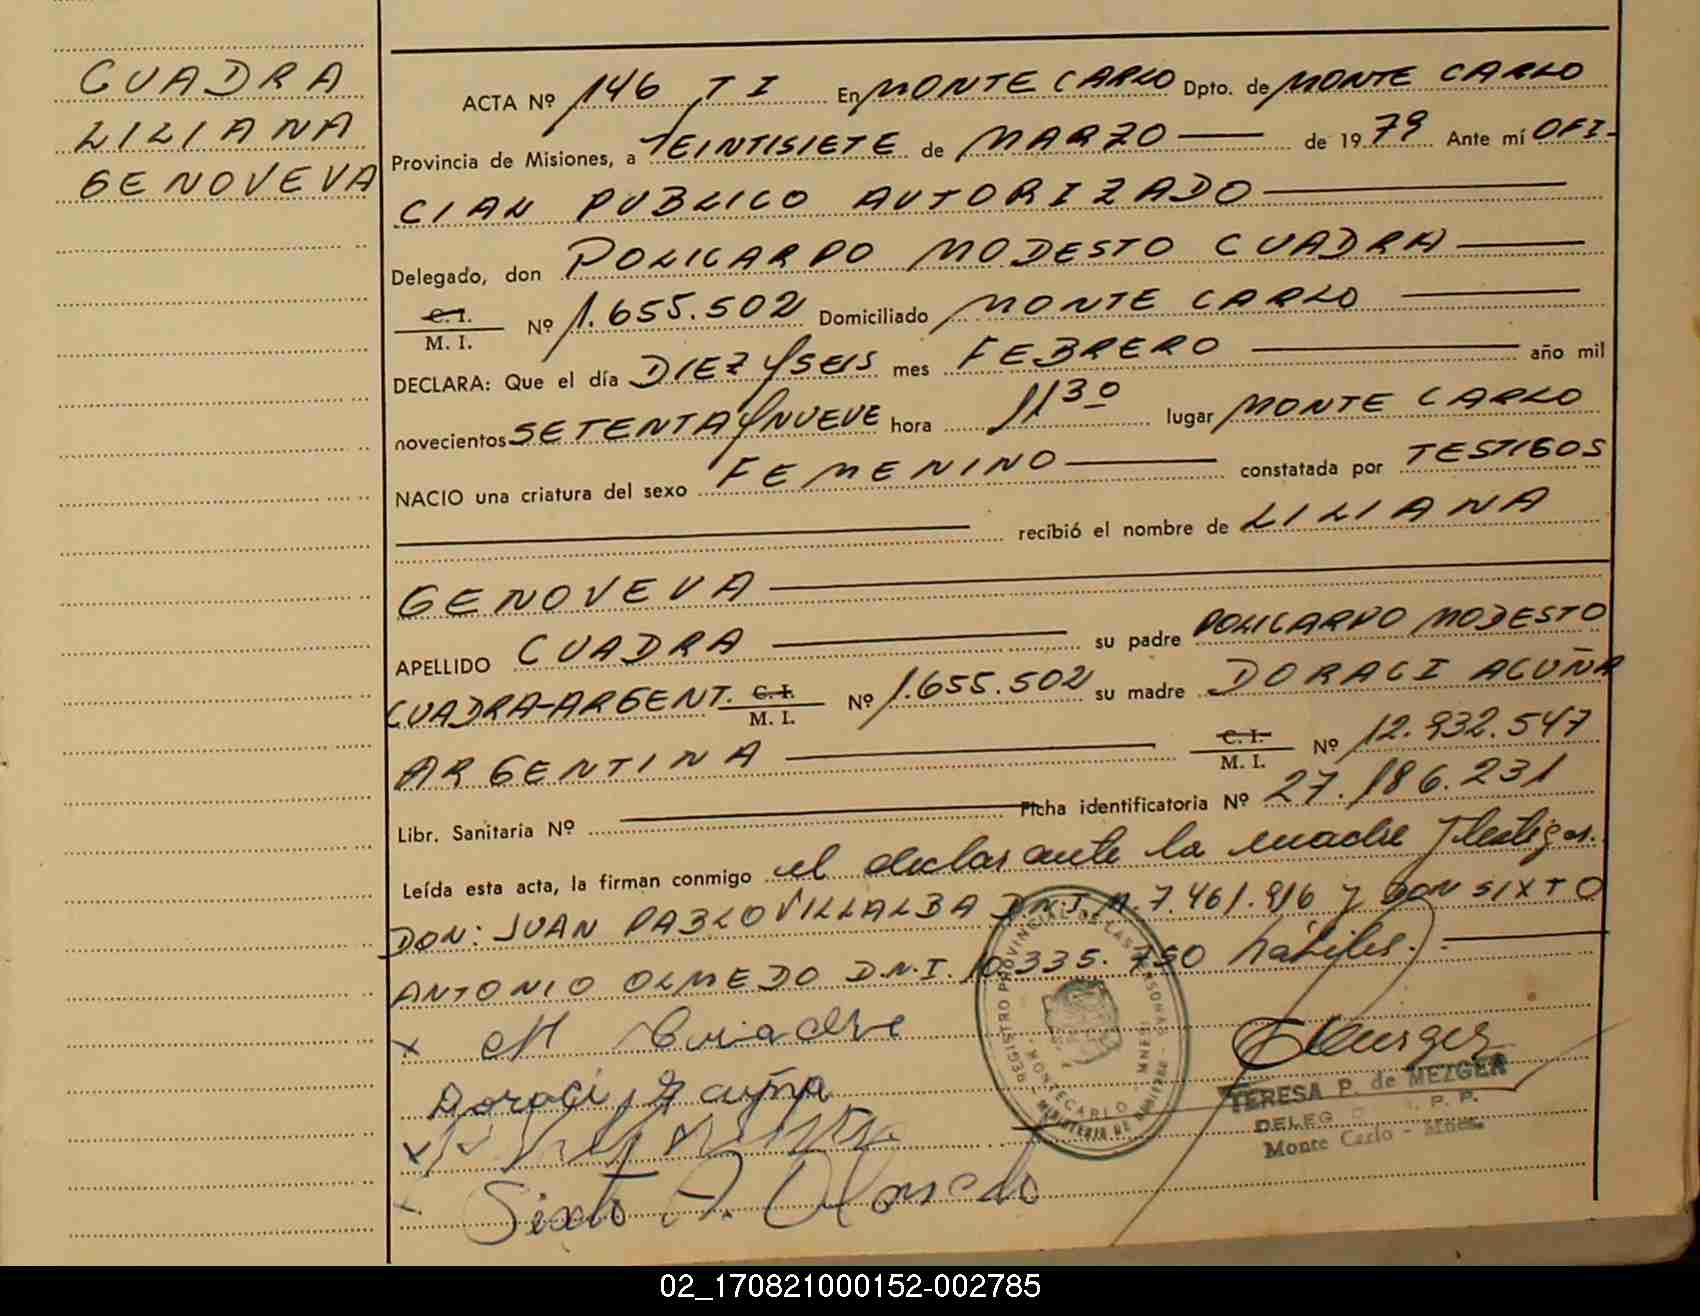 CUADRA
LILIANA
GENOVEVA
ACTA Nº 146 T I En MONTE CARLO Dpto. de MONTE CARLO
Provincia de Misiones, a VEINTISIETE de MARZO de 1979 Ante mí OFI-
CIAN PUBLICO AUTORIZADO
Delegado, don POLICARPO MODESTO CUADRA
C. I.
M. I. Nº 1.655.502 Domiciliado MONTE CARLO
DECLARA: Que el día DIEZ y SEIS mes FEBRERO año mil
novecientos SETENTA y NUEVE hora 11 30 lugar MONTE CARLO
NACIO una criatura del sexo FEMENINO constatada por TESTIGOS
recibió el nombre de LILIANA
GENOVEVA
APELLIDO CUADRA su padre POLICARPO MODESTO
CUADRA-ARGENT. C. I. M. I. Nº 1.655.502 su madre DORACI ACUÑA
ARGENTINA C. I. M. I. Nº 12.932.547
Libr. Sanitaria Nº Ficha identificatoria Nº 27.186.231
Leída esta acta, la firman conmigo el declarante la madre y testigos.
DON: JUAN PABLO VILLALBA D.N.I. M. 7.461.916 y DON SIXTO
ANTONIO OLMEDO D.N.I. 10.335.750 hábiles.
M Cuadra
Doraci Acuña
Sixto A. Olmedo
REGISTRO PROVINCIAL DE LAS PERSONAS
MONTECARLO MNES.
MINISTERIO DE
TERESA P. de MEZGER
DELEG P. P.
Monte Carlo - Mnes.
02_170821000152-002785